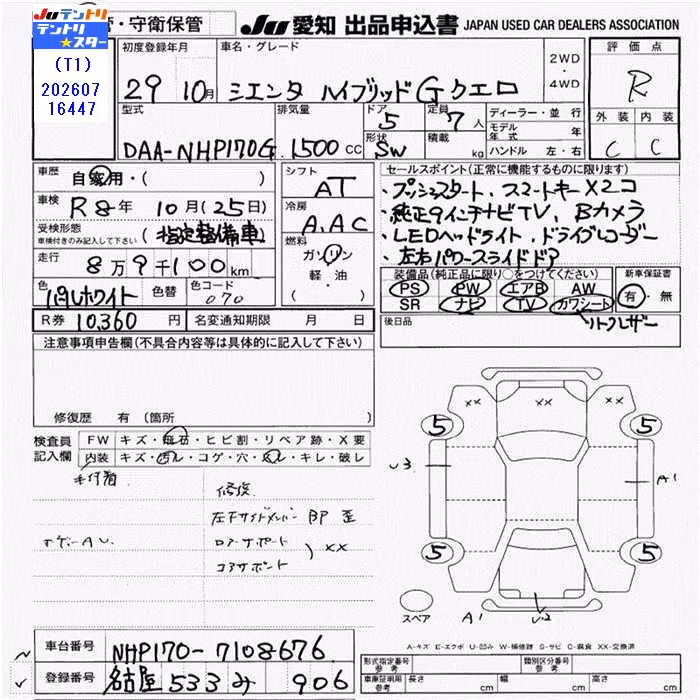 テントリ
テントリ★スター
(T1)
202607
16447
・守衛保管
JU 愛知 出品申込書 JAPAN USED CAR DEALERS ASSOCIATION
初度登録年月 車名・グレード 2WD・4WD 評価点
29 10月 シエンタ ハイブリッド G クエロ R
型式 排気量 ドア 5 定員 7人 ディーラー・並行 外装 内装
モデル年式 年
DAA-NHP170G 1500cc 形状 SW 積載 kg ハンドル 左・右 C C
車歴 自家用・( ) シフト AT セールスポイント(正常に機能するものに限ります)
・プッシュスタート、スマートキーX2コ
車検 R8年 10月(25日) 冷房 A.AC ・純正9インチナビTV、Bカメラ
受検形態 車検付きのみ記入して下さい (指定整備車) 燃料 ガソリン 軽・油 ( ) ・LEDヘッドライト、ドライブレコーダー
走行 8万9千100km ・左右パワースライドドア
装備品(純正品に限り○をつけてください) 新車保証書
色 パールホワイト 色替 色コード 070 PS PW エアB AW 有・無
SR ナビ TV カワシート
R券 10,360円 名変通知期限 月 日 後日品 ハーフレザー
注意事項申告欄(不具合内容等は具体的に記入して下さい)
修復歴 有 (箇所
検査員記入欄 FW キズ・飛石・ヒビ割・リペア跡・X要
内装 キズ・汚レ・コゲ・穴・スレ・キレ・破レ
毛付着 修復
左Fサイドメンバー BP 歪
コアサポート ) XX
XX XX XX
5 5
U3 A1
5 5
スペア A1 U2
A-キズ E-エクボ U-凹み W-補修跡 S-サビ C-腐食 XX-交換済
車台番号 NHP170-7108676
登録番号 名古屋 533 み 906
形式指定番号 参考 類別区分番号 参考
車庫証明用 参考 長さ cm 幅 cm 高さ cm